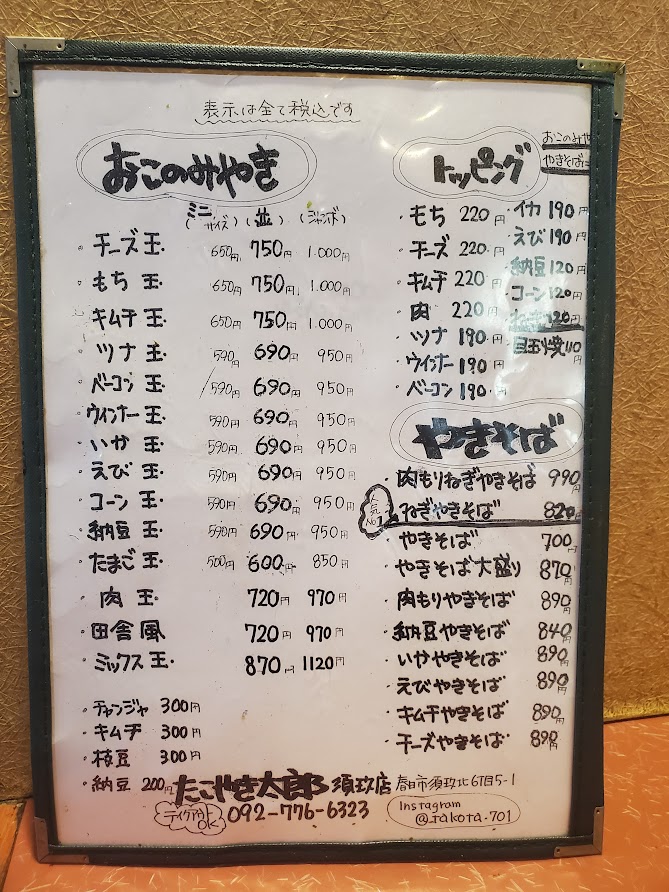 表示は全て税込です
おこのみやき
ミニ
(サイズ) (並) (ジャンボ)
・チーズ玉 650円 750円 1.000円
・もち玉 650円 750円 1.000円
・キムチ玉 650円 750円 1.000円
・ツナ玉 590円 690円 950円
・ベーコン玉 590円 690円 950円
・ウインナー玉 590円 690円 950円
・いか玉 590円 690円 950円
・えび玉 590円 690円 950円
・コーン玉 590円 690円 950円
・納豆玉 590円 690円 950円
・たまご玉 500円 600円 850円
・肉玉 720円 970円
・田舎風 720円 970円
・ミックス玉 870円 1120円
・チャンジャ 300円
・キムチ 300円
・枝豆 300円
・納豆 200円
トッピング
おこのみや
やきそば
・もち 220円
・チーズ 220円
・キムチ 220円
・肉 220円
・ツナ 190円
・ウインナー 190円
・ベーコン 190円
・イカ 190円
・えび 190円
・納豆 120円
・コーン 120円
・ねぎ 120円
・目玉焼 110円
やきそば
・肉もりねぎやきそば 990
人気No.1
・ねぎやきそば 820円
・やきそば 700円
・やきそば大盛り 870円
・肉もりやきそば 890円
・納豆やきそば 840円
・いかやきそば 890円
・えびやきそば 890円
・キムチやきそば 890円
・チーズやきそば 890円
たこやき太郎 須玖店 春日市須玖北6丁目5-1
テイクアウトOK 092-776-6323
Instagram
@takota.701